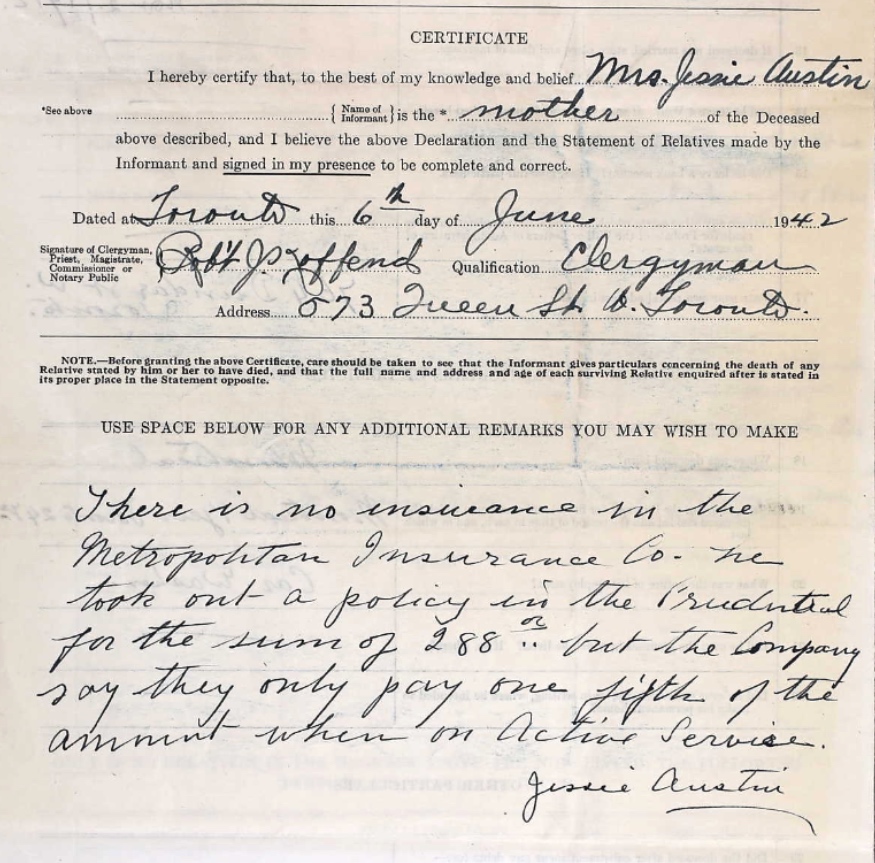 CERTIFICATE
I hereby certify that, to the best of my knowledge and belief Mrs. Jessie Austin
*See above { Name of Informant } is the * mother of the Deceased
above described, and I believe the above Declaration and the Statement of Relatives made by the
Informant and signed in my presence to be complete and correct.
Dated at Toronto this 6th day of June 1942
Signature of Clergyman,
Priest, Magistrate,
Commissioner or
Notary Public
Rob't J. Qualification Clergyman
Address 573 Queen St. W. Toronto.
NOTE.—Before granting the above Certificate, care should be taken to see that the Informant gives particulars concerning the death of any
Relative stated by him or her to have died, and that the full name and address and age of each surviving Relative enquired after is stated in
its proper place in the Statement opposite.
USE SPACE BELOW FOR ANY ADDITIONAL REMARKS YOU MAY WISH TO MAKE
There is no insurance in the
Metropolitan Insurance Co. he
took out a policy in the Prudential
for the sum of 288 but the Company
say they only pay one fifth of the
amount when on Active Service.
Jessie Austin